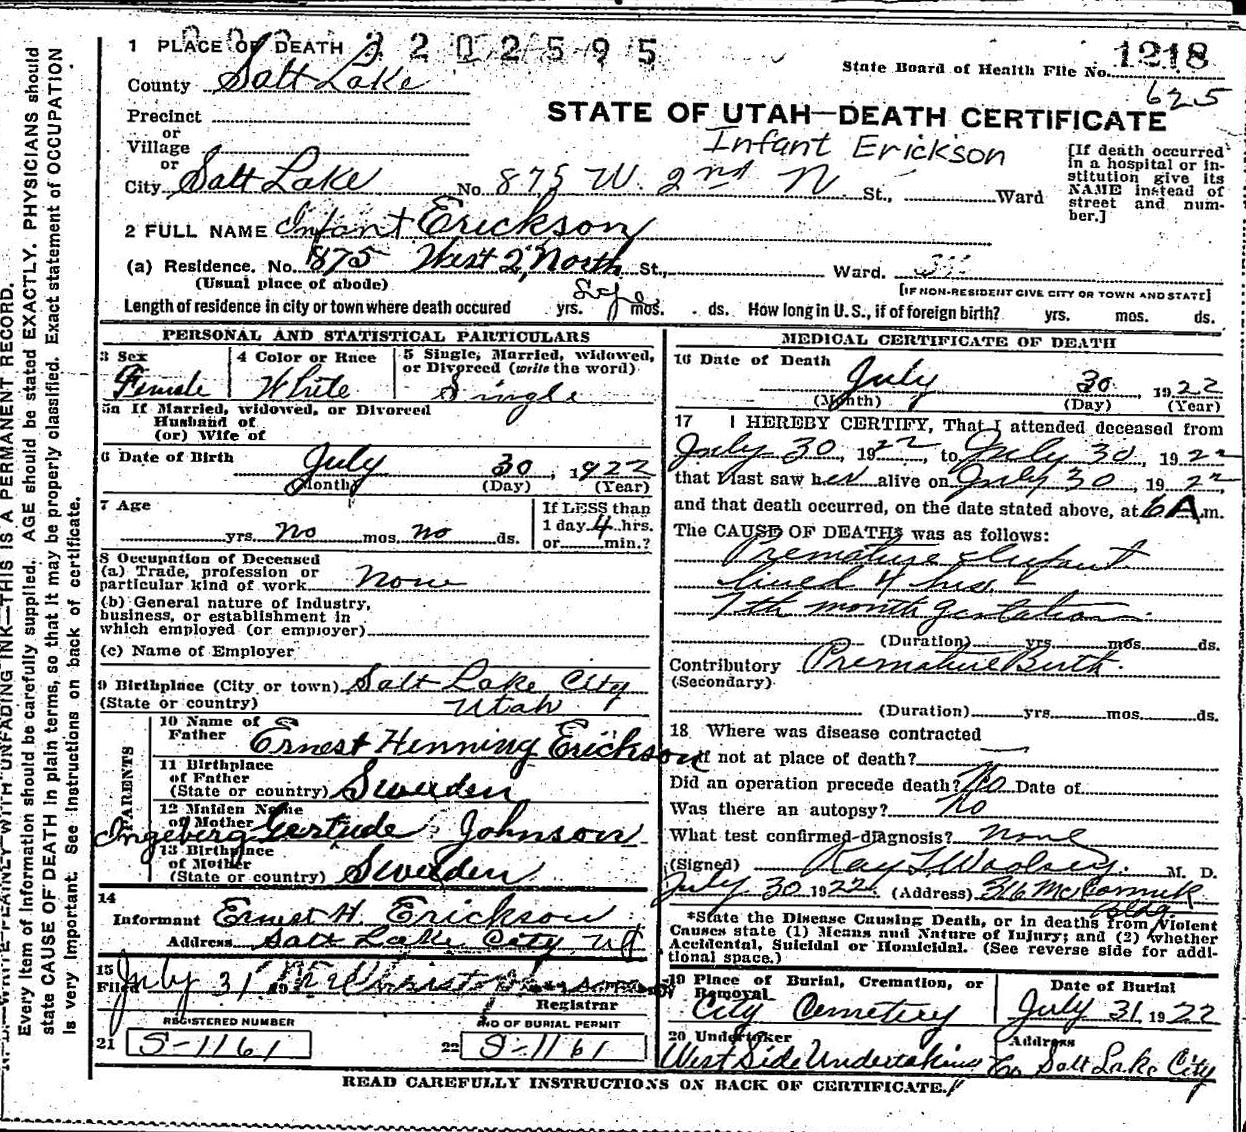 N.B.—WRITE PLAINLY WITH UNFADING INK—THIS IS A PERMANENT RECORD.
Every item of information should be carefully supplied. AGE should be stated EXACTLY. PHYSICIANS should
state CAUSE OF DEATH in plain terms, so that it may be properly classified. Exact statement of OCCUPATION
is very important. See instructions on back of certificate.
2202595
1 PLACE OF DEATH
1218
State Board of Health File No.
625
County Salt Lake
STATE OF UTAH—DEATH CERTIFICATE
Precinct
or
Village
or
Infant Erickson
[If death occurred
in a hospital or in-
stitution give its
NAME instead of
street and num-
ber.]
City Salt Lake No. 875 W. 2nd N St., Ward
2 FULL NAME Infant Erickson
(a) Residence. No. 875 West 2 North St., Ward.
(Usual place of abode)
[IF NON-RESIDENT GIVE CITY OR TOWN AND STATE]
Length of residence in city or town where death occured Life yrs. mos. ds. How long in U.S., if of foreign birth? yrs. mos. ds.
PERSONAL AND STATISTICAL PARTICULARS
3 Sex Female
4 Color or Race White
5 Single, Married, widowed,
or Divorced (write the word)
Single
5a If Married, widowed, or Divorced
Husband of
(or) Wife of
6 Date of Birth July 30, 1922
(Month) (Day) (Year)
7 Age
yrs. no mos. no ds.
If LESS than
1 day 4 hrs.
or min.?
8 Occupation of Deceased
(a) Trade, profession or
particular kind of work None
(b) General nature of Industry,
business, or establishment in
which employed (or employer)
(c) Name of Employer
9 Birthplace (City or town) Salt Lake City
(State or country) Utah
PARENTS
10 Name of
Father Ernest Henning Erickson
11 Birthplace
of Father
(State or country) Sweden
12 Maiden Name
of Mother
Ingeberg Gertude Johnson
13 Birthplace
of Mother
(State or country) Sweden
14
Informant Ernest H. Erickson
Address Salt Lake City Ut
15
Filed July 31
Registrar
REGISTERED NUMBER
21 S-1161
NO OF BURIAL PERMIT
22 S-1161
MEDICAL CERTIFICATE OF DEATH
16 Date of Death July 30 1922
(Month) (Day) (Year)
17 I HEREBY CERTIFY, That I attended deceased from
July 30, 1922, to July 30, 1922
that I last saw her alive on July 30, 1922,
and that death occurred, on the date stated above, at 6 A.m.
The CAUSE OF DEATH* was as follows:
Premature Infant
lived 4 hrs.
7th month gestation.
(Duration) yrs. mos. ds.
Contributory Premature Birth.
(Secondary)
(Duration) yrs. mos. ds.
18 Where was disease contracted
if not at place of death?
Did an operation precede death? No Date of
Was there an autopsy? No
What test confirmed diagnosis? None
(Signed) Ray T. Woolsey. M. D.
July 30 1922. (Address) 316 McCormick
Bldg
*State the Disease Causing Death, or in deaths from Violent
Causes state (1) Means and Nature of Injury; and (2) whether
Accidental, Suicidal or Homicidal. (See reverse side for addi-
tional space.)
19 Place of Burial, Cremation, or
Removal
City Cemetery
Date of Burial
July 31, 1922
20 Undertaker
West Side Undertaking Co
Address
Salt Lake City
READ CAREFULLY INSTRUCTIONS ON BACK OF CERTIFICATE.